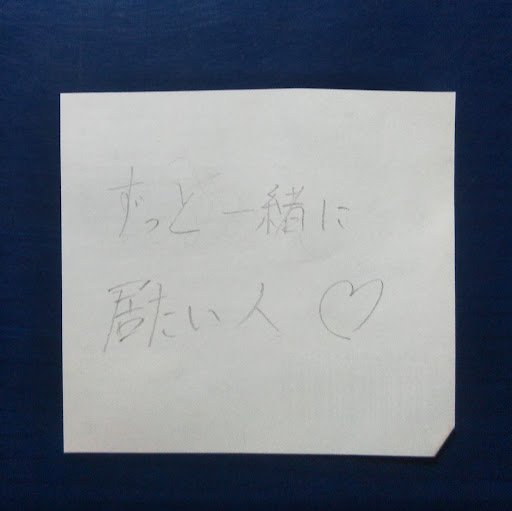 ずっと一緒に
居たい人♡